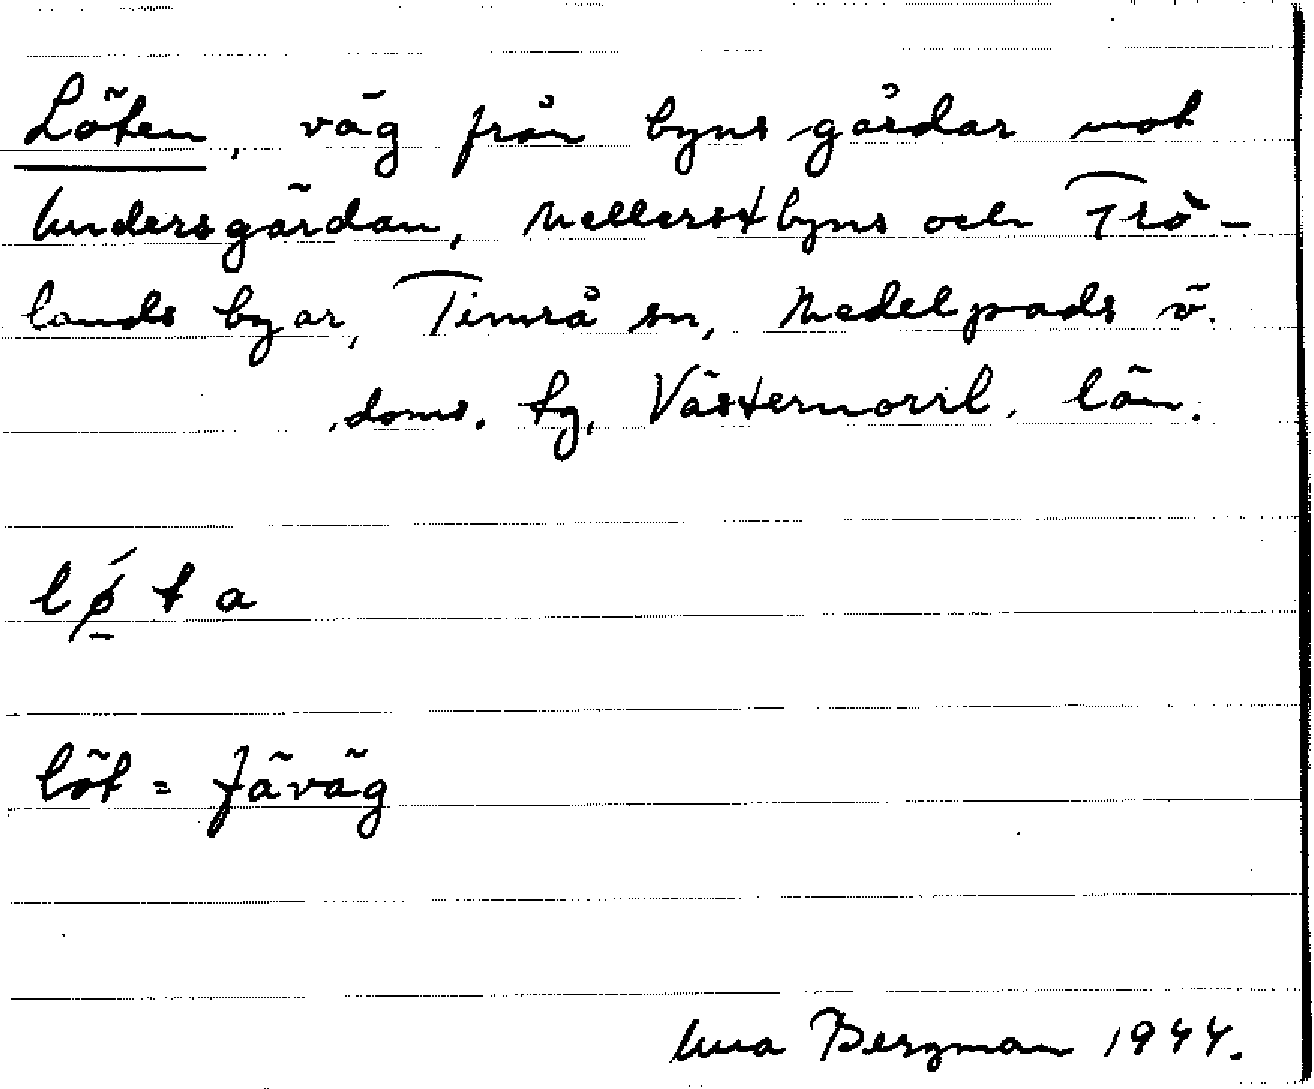 Löten, väg från byns gårdar mot
Undersgärdan, Mellerstbyns och Trö-
lands byar, Timrå sn, Medelpads v.
doms. tg, Västernorrl. län.
lǿ̱ta
löt = fäväg
Una Bergman 1944.